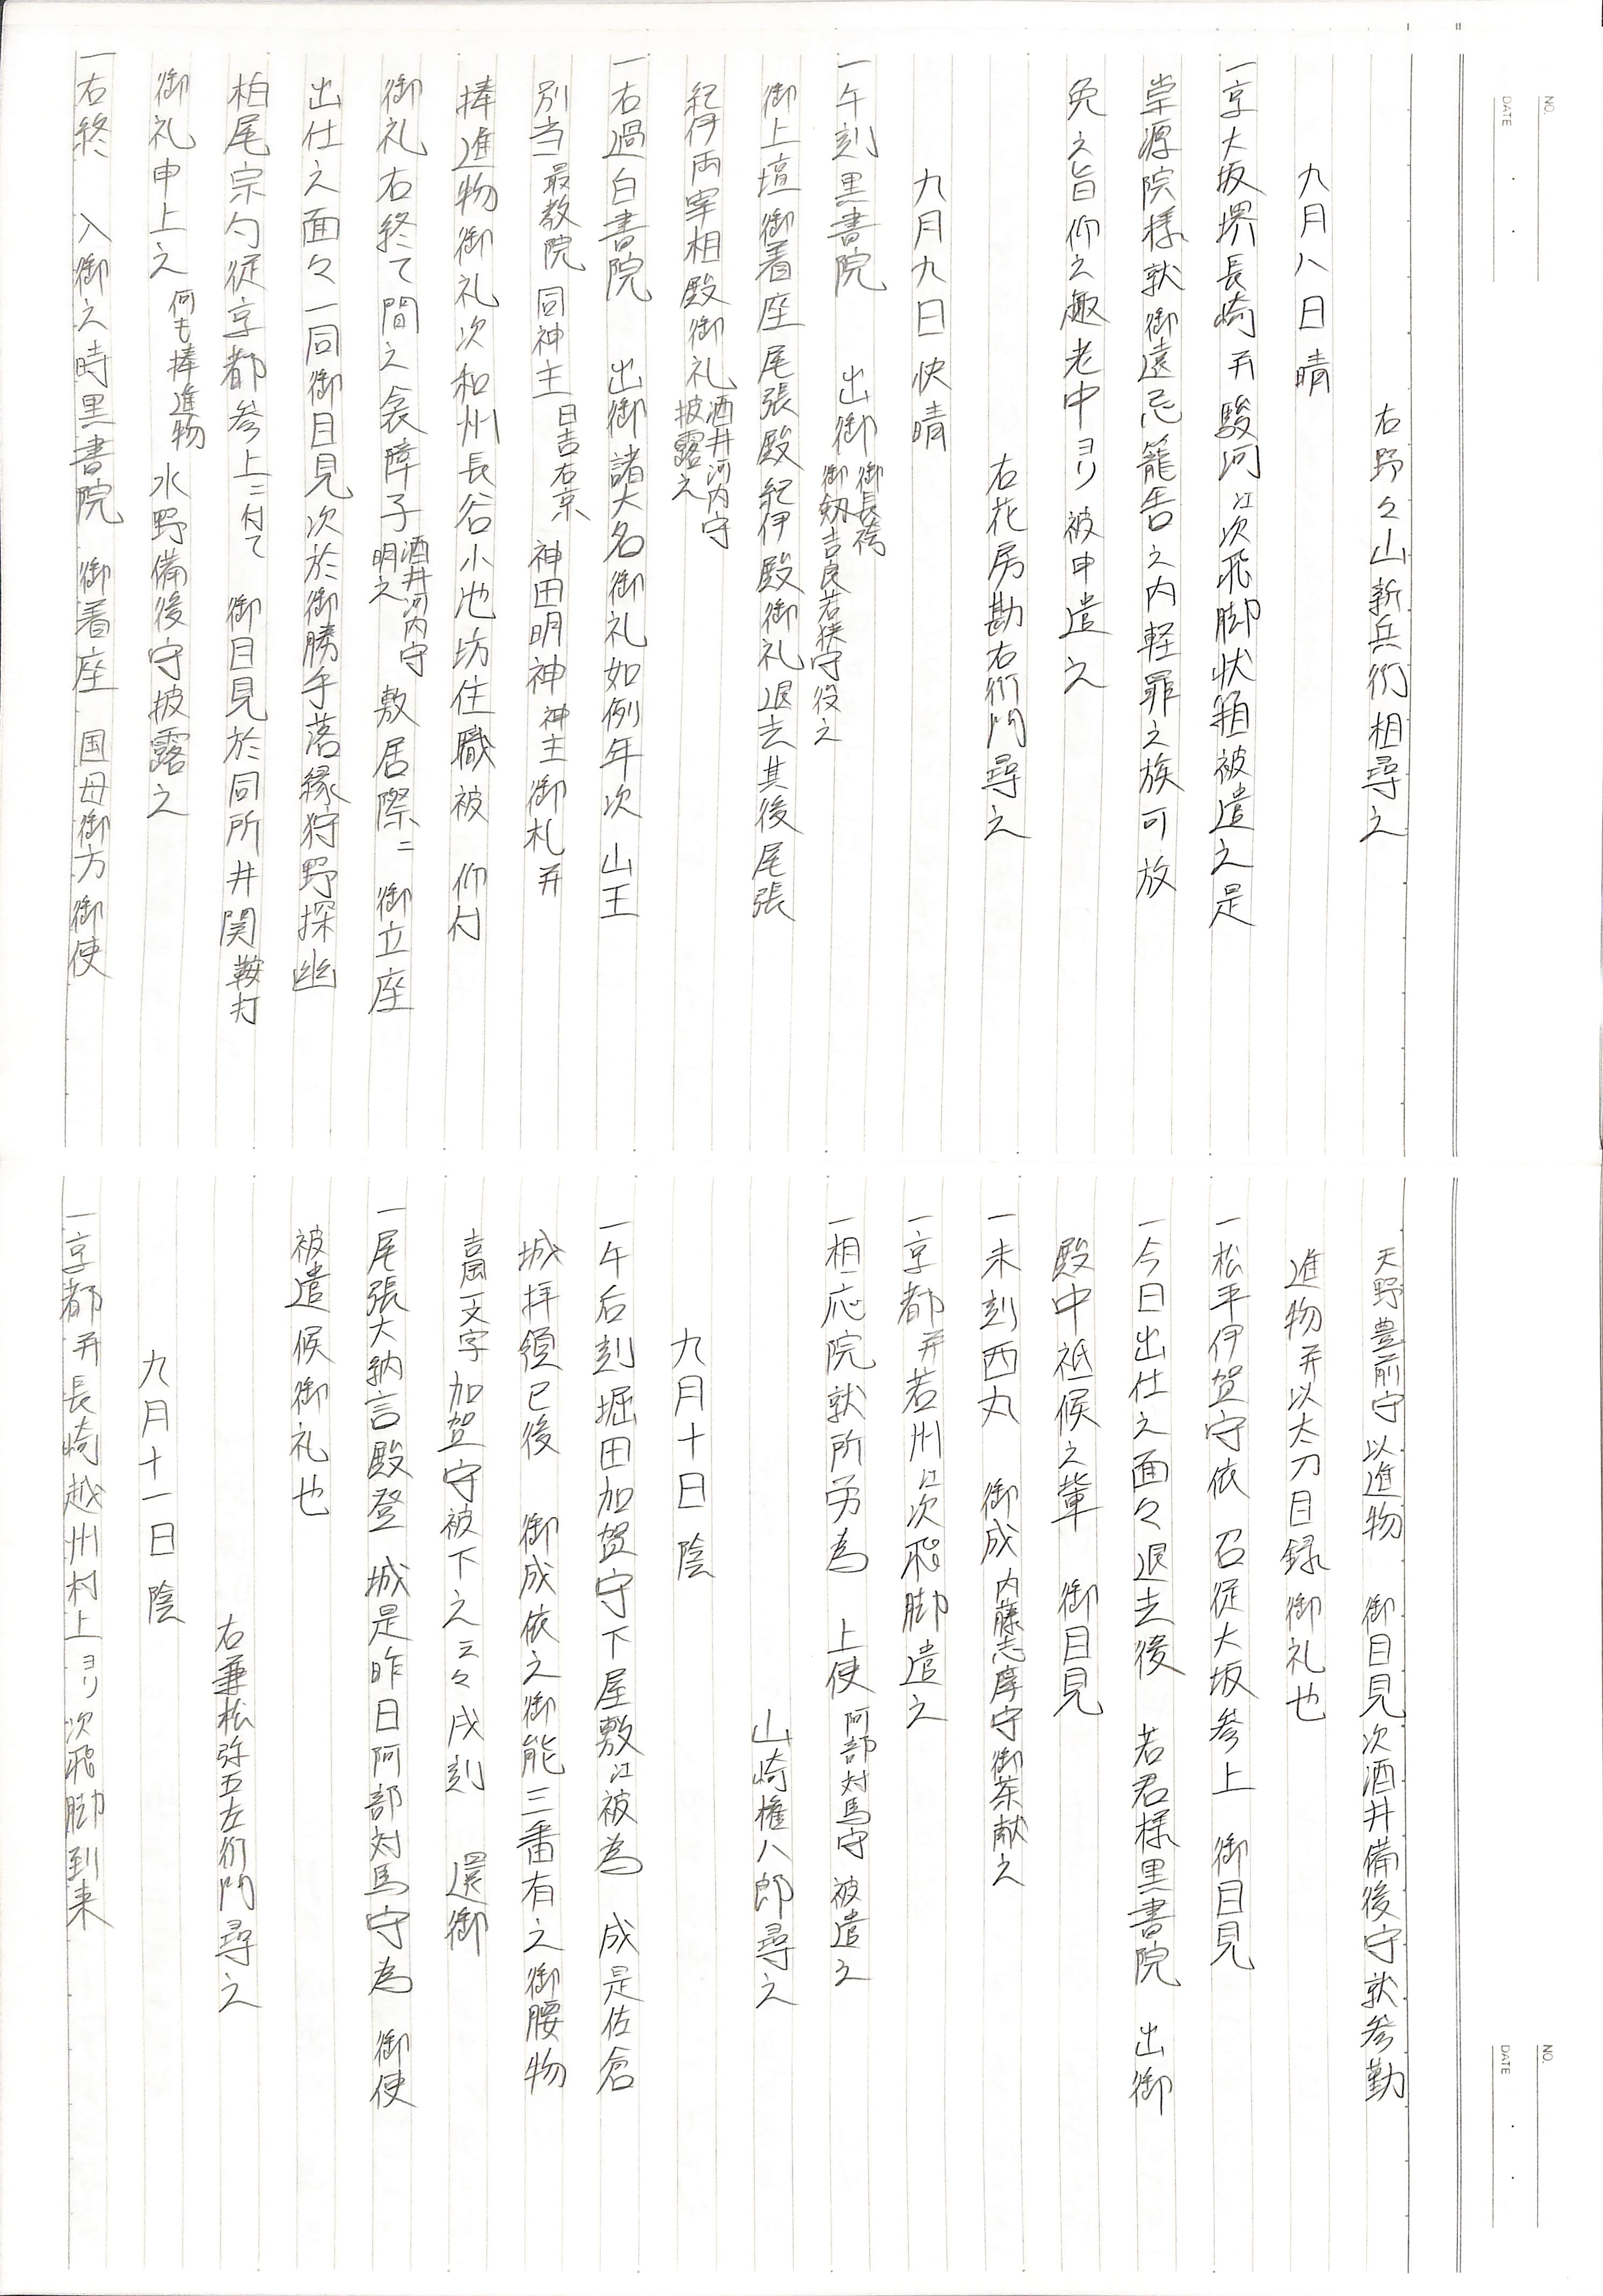 NO.
DATE
右野々山新兵衛相尋之
九月八日 晴
一京大坂堺長崎并駿河江次飛脚状箱被遣之是
崇源院様就御遠忌籠舎之内軽罪之族可放
免之旨仰之趣老中ヨリ被申遣之
右花房勘右衛門尋之
九月九日 快晴
一午刻黒書院 出御 御長袴 御剱吉良若狭守役之
御上壇御着座尾張殿紀伊殿御礼退去其後尾張
紀伊両宰相殿御礼 酒井河内守披露之
一右過白書院 出御諸大名御礼如例年次 山王
別当最教院 同神主 日吉右京 神田明神 神主御札并
捧進物御礼次和州長谷小池坊住職被 仰付
御礼右終て間之衾障子 酒井河内守明之 敷居際ニ 御立座
出仕之面々一同御目見次於御勝手落縁狩野探幽
柏尾宗勺従京都参上ニ付て 御目見於同所井関鞍打
御礼申上之 何も捧進物 水野備後守披露之
一右終 入御之時黒書院 御着座 国母御方御使
NO.
DATE
天野豊前守以進物 御目見次酒井備後守就参勤
進物并以太刀目録御礼也
一松平伊賀守依 召従大坂参上 御目見
一今日出仕之面々退去後 若君様黒書院 出御
殿中祗候之輩 御目見
一未刻西丸 御成 内藤志摩守御茶献之
一京都并若州江次飛脚遣之
一相応院就所労為 上使 阿部対馬守 被遣之
山崎権八郎尋之
九月十日 陰
一午后刻堀田加賀守下屋敷江被為 成是佐倉
城拝領已後 御成依之御能三番有之御腰物
吉岡一文字 加賀守被下之云々戌刻 還御
一尾張大納言殿登 城是昨日阿部対馬守為 御使
被遣候御礼也
右兼松弥五左衛門尋之
九月十一日 陰
一京都并長崎越州村上ヨリ次飛脚到来